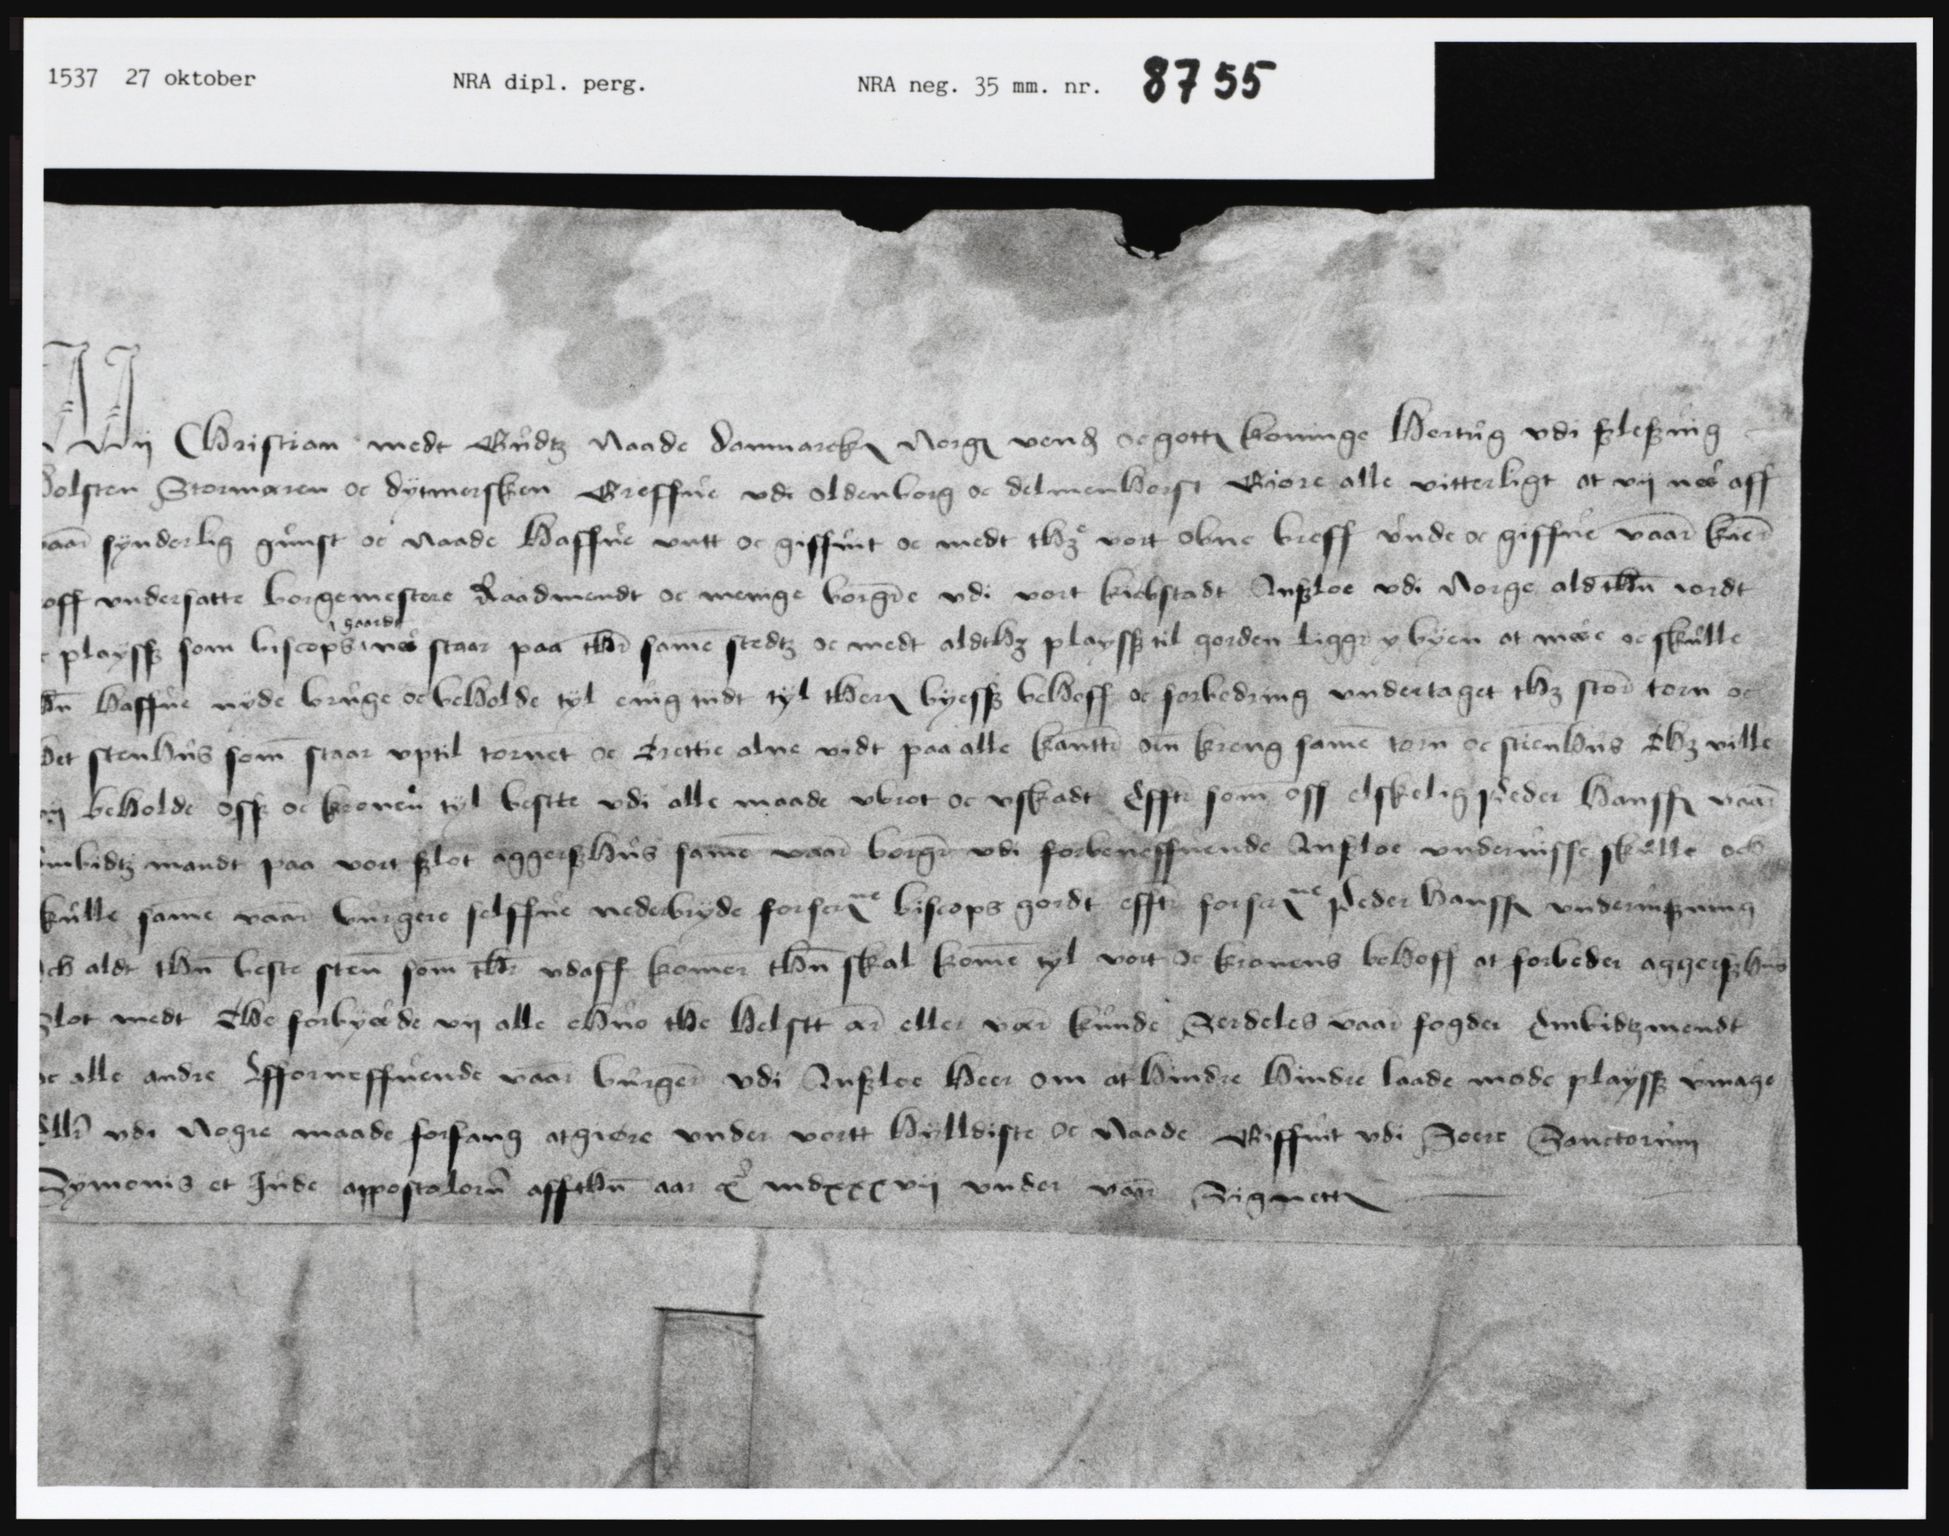 1537 27 oktober NRA dipl. perg. NRA neg. 35 mm. nr. 8755
Wij Christian medt Gudtz Naade Danmarcks Norgs vends oc gotts koninge Hertug vdi sleszuig
Holsten Stormaren oc dytmersken Greffue vdi oldenborg oc delmenhorst Giøre alle vitterligt at vij nw aff
vaar synderlig gunst oc Naade Haffue vntt oc giffuit oc medt thz vort obne breff vnde oc giffue vaar kær
off vndersatte borgemestere Raadmendt oc menige borgre vdi vort kiøbstadt Anszloe vdi Norge ald thn iordt
playsz som biscops gaardt nw staar paa thr same stedtz oc medt aldthz playsz til gorden liggr y byen at mwe oc skulle
haffue nyde bruge oc beholde tyl euig tiidt tyl thers byessz behoff oc forbedring vndertaget thz stor torn oc
Det stenhus som staar vptil tornet oc trettie alne vidt paa alle kantter om kreng same torn oc stenhus Thz ville
vij beholde osz oc kronen tyl bestte vdi alle maade vbrot oc vskadt Effter som osz elskelig Peder Hanssz vaar
Embidtz mandt paa vort szlot aggerszhus same vaar borgr vdi forbeneffnende Anszloe vnderuisse skulle och
skulle same vaar burgere selffue nederbryde forscrne biscops gordt effter forscrne Peder Hanssz vnderuiszning
Och aldt thn beste sten som thr vdaff komer thn skal kome tyl vort oc kronens behoff at forbeder aggerszhus
szlot medt The forbyde vij alle ehuo the helstt ær eller vær kunde Serdeles vaar fogder Embidtzmendt
oc alle andre Efforneffnende vaar burger vdi Anszloe Heer om at hindre hindre laade mode playsz vmage
Ellr vdi Nogre maade forfang at giøre vnder vortt Hylldiste oc Naade Giffuit vdi Soere Sanctorum
Symonis et Jude appostolorum aff thn aar mdxxxvij vnder vaar Signett